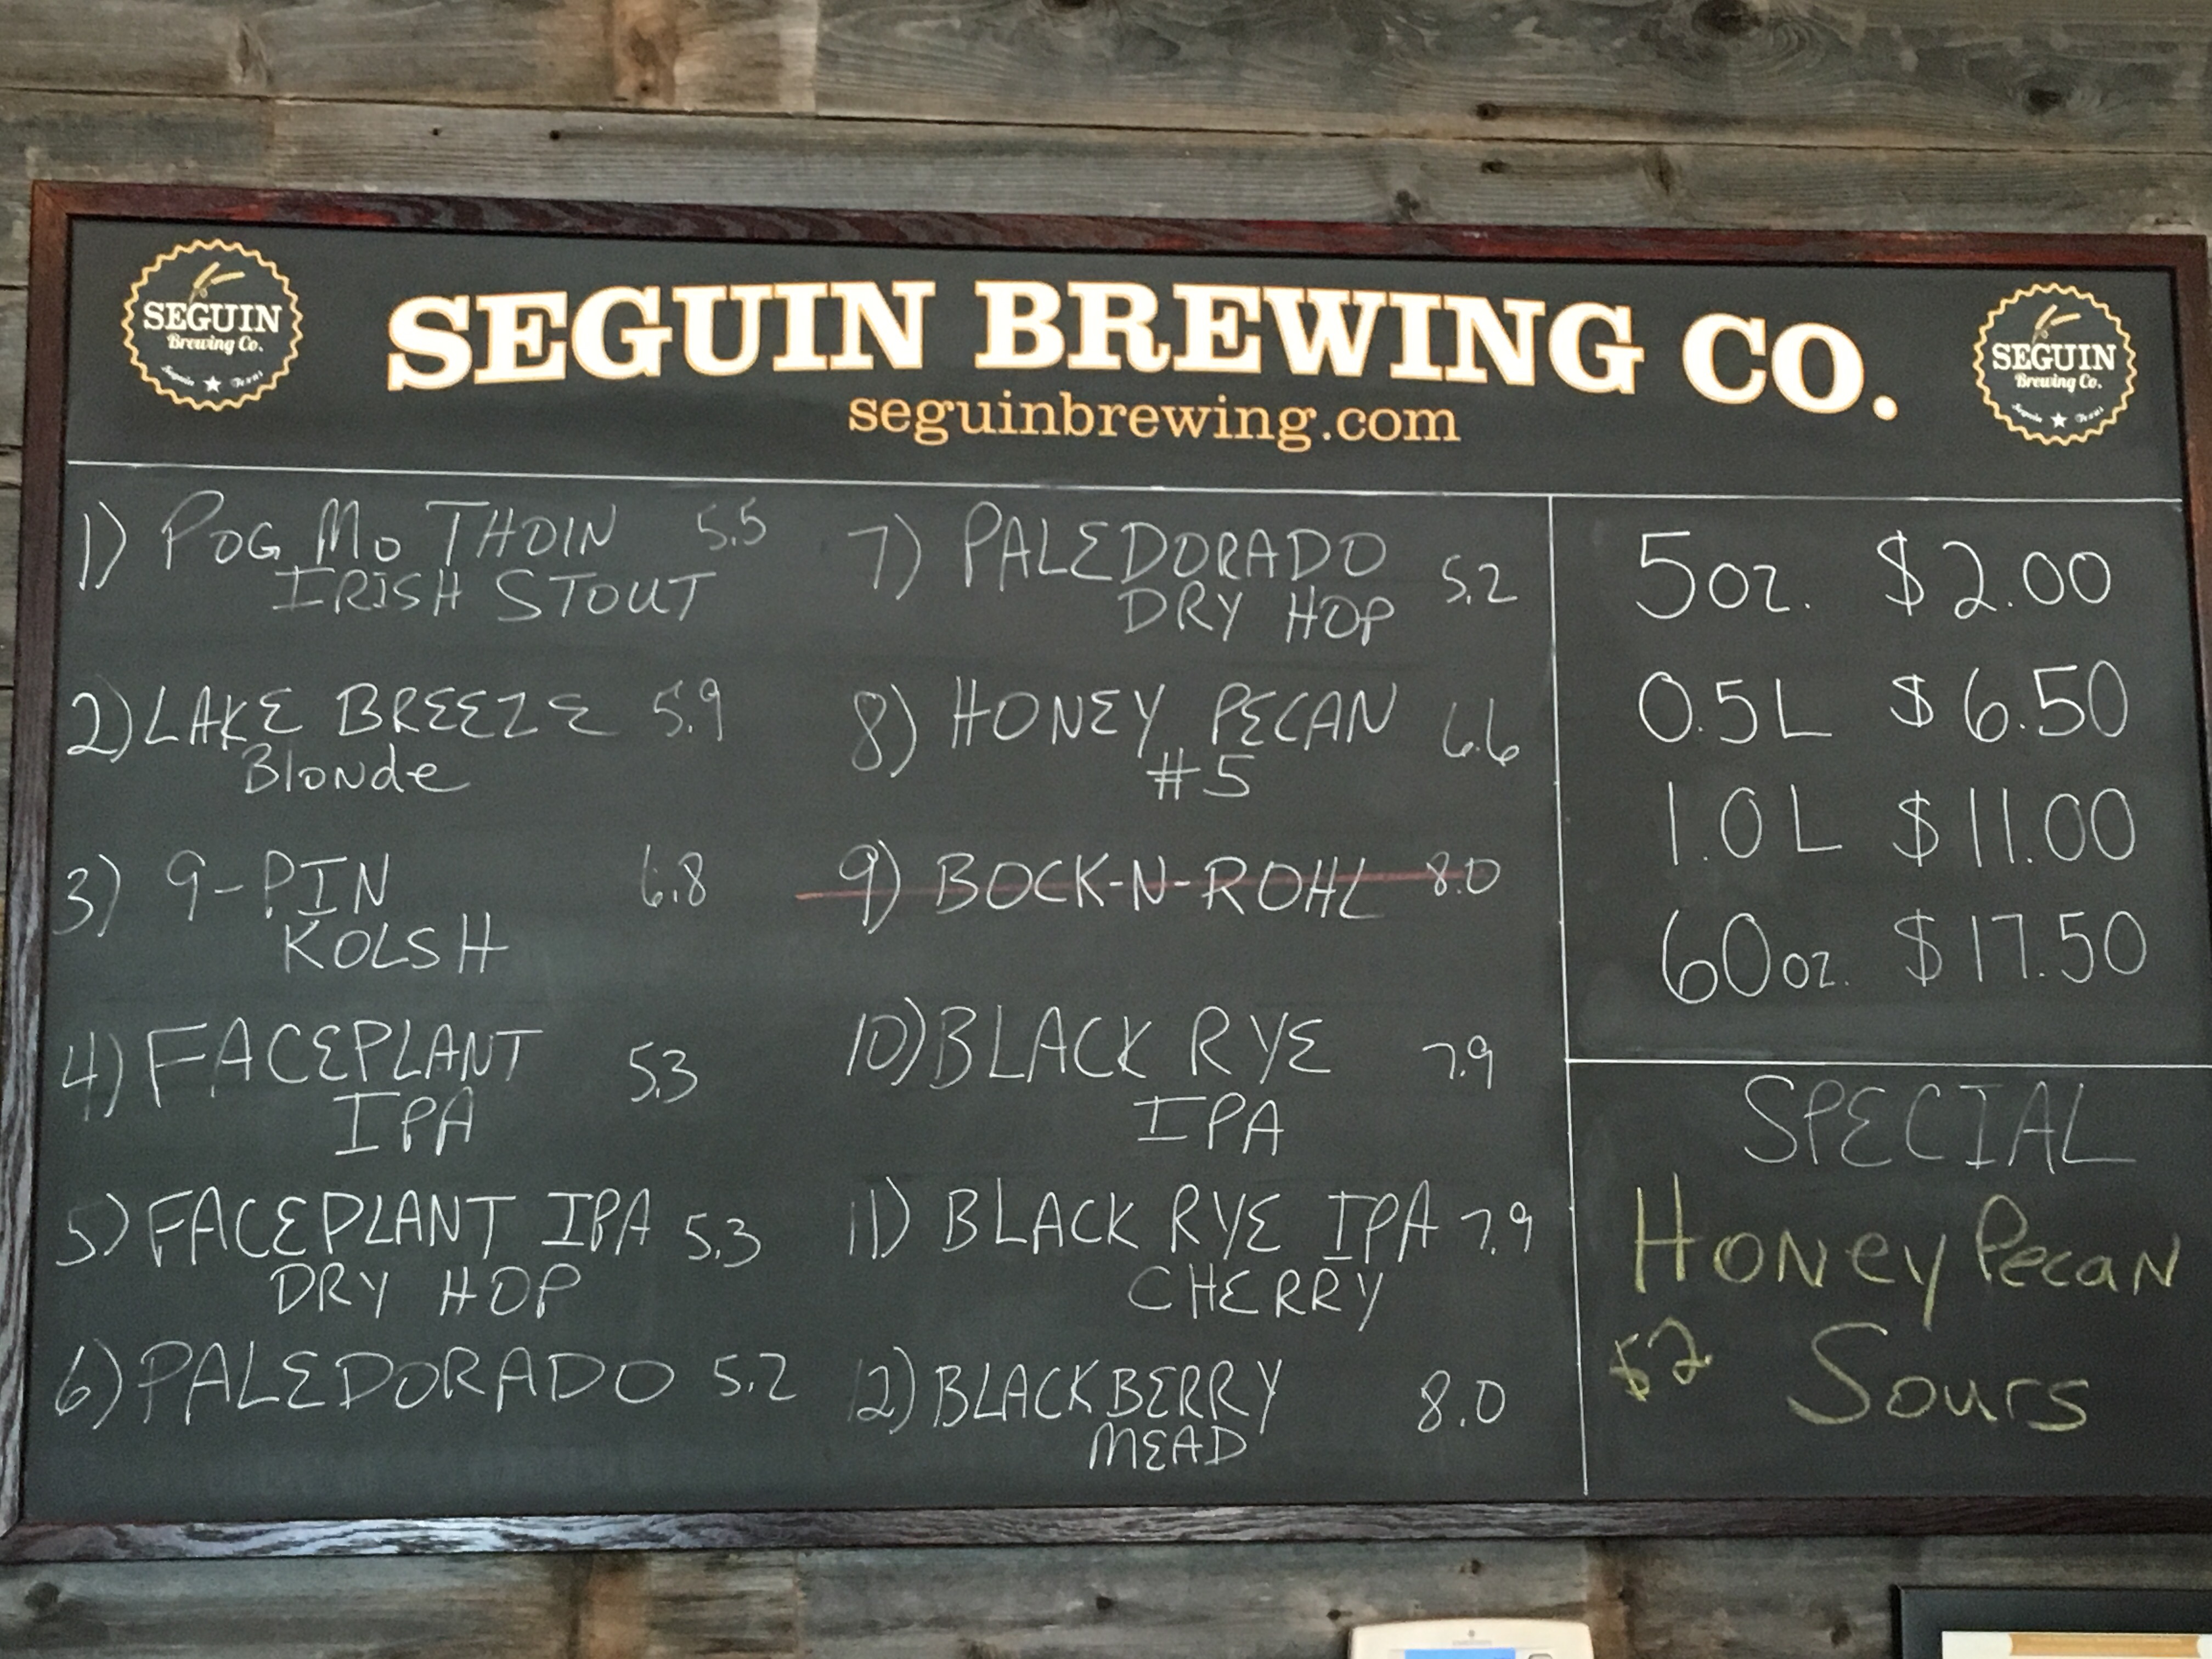 SEGUIN
Brewing Co.
Seguin ★ Texas
SEGUIN BREWING CO.
seguinbrewing.com
SEGUIN
Brewing Co.
Seguin ★ Texas
1) POG MO THOIN 5.5
IRISH STOUT
2) LAKE BREEZE 5.9
Blonde
3) 9-PIN 6.8
KOLSH
4) FACEPLANT 5.3
IPA
5) FACEPLANT IPA 5.3
DRY HOP
6) PALEDORADO 5.2
7) PALEDORADO 5.2
DRY HOP
8) HONEY PECAN 6.6
#5
9) BOCK-N-ROHL 8.0
10) BLACK RYE 7.9
IPA
11) BLACK RYE IPA 7.9
CHERRY
12) BLACKBERRY 8.0
MEAD
5oz. $2.00
0.5L $6.50
1.0L $11.00
60oz. $17.50
SPECIAL
Honey Pecan
$2 Sours